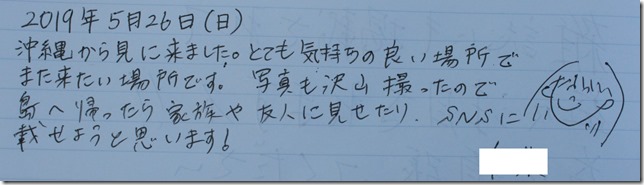 2019年5月26日(日)
沖縄から見に来ました。とても気持ちの良い場所で
また来たい場所です。写真も沢山撮ったので
島へ帰ったら家族や友人に見せたり、SNSに
載せようと思います!